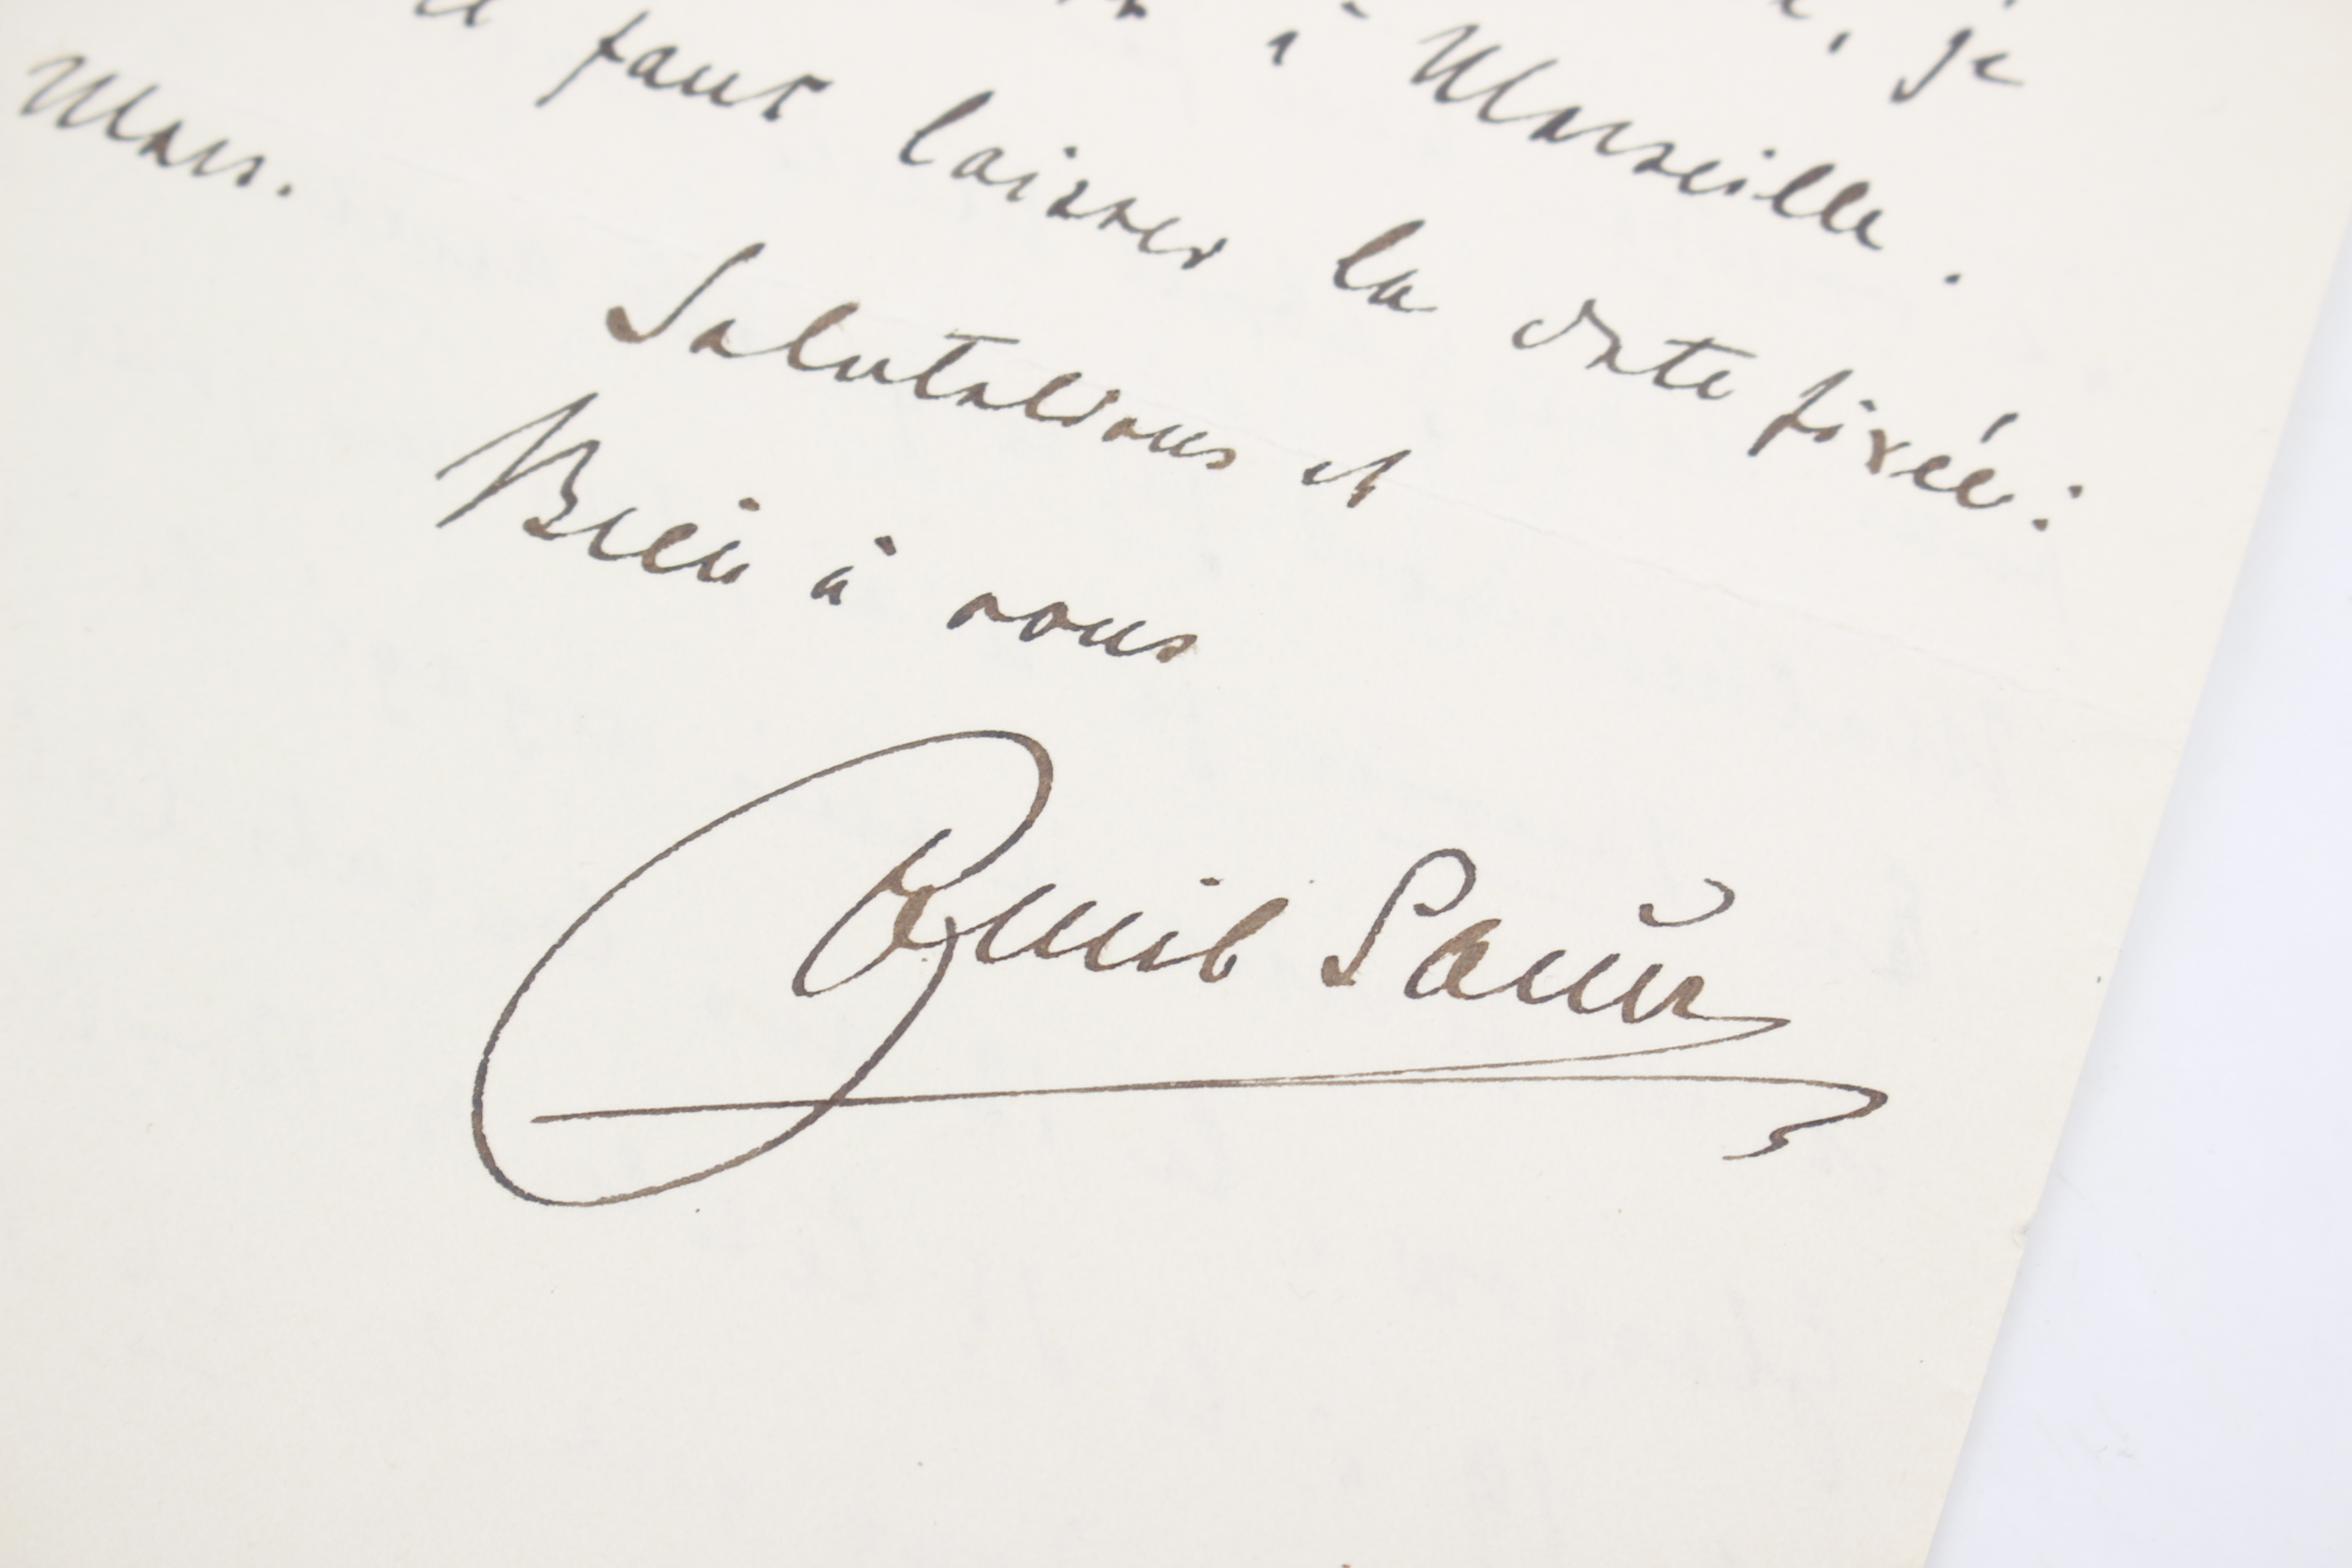 je
à Marseille.
faut laisser la date fixée:
Mars.
Salutations et
Bien à vous
Emil Sauer